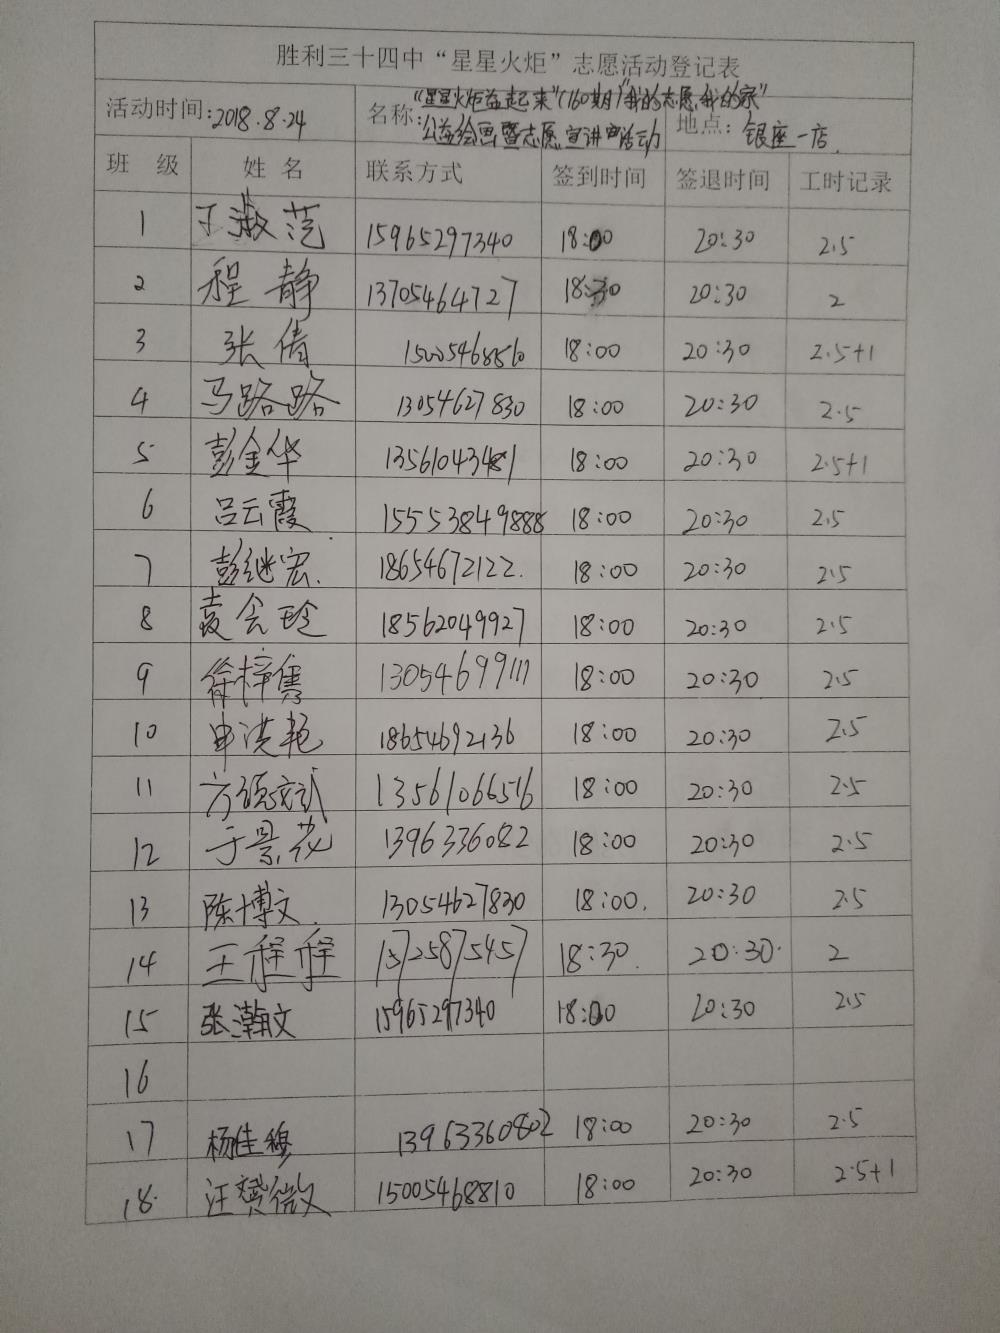 胜利三十四中“星星火炬”志愿活动登记表
活动时间:2018.8.24 名称:“星星火炬益起来”(160期)“我的志愿,我的家” 公益绘画暨志愿宣讲活动 地点:银座一店.
班 级 姓 名 联系方式 签到时间 签退时间 工时记录
1 淑范 15965297340 18:00 20:30 2.5
2 程静 13705464727 18:30 20:30 2
3 张倩 18:00 20:30 2.5+1
4 马路路 13054627830 18:00 20:30 2.5
5 彭金华 13561043481 18:00 20:30 2.5+1
6 吕云霞 18:00 20:30 2.5
7 彭继宏. 18654672122. 18:00 20:30 2.5
8 袁会玲 18562049927 18:00 20:30 2.5
9 徐梓隽 13054699111 18:00 20:30 2.5
10 申洪艳 18654692136 18:00 20:30 2.5
11 13561066516 18:00 20:30 2.5
12 于景花 1396336082 18:00 20:30 2.5
13 陈博文. 13054627830 18:00. 20:30 2.5
14 王程程 15725875457 18:30. 20:30. 2
15 张瀚文 15965297340 18:00 20:30 2.5
16
17 杨佳穆 13963360802 18:00 20:30 2.5
18. 汪赞微 15005468810 18:00 20:30 2.5+1